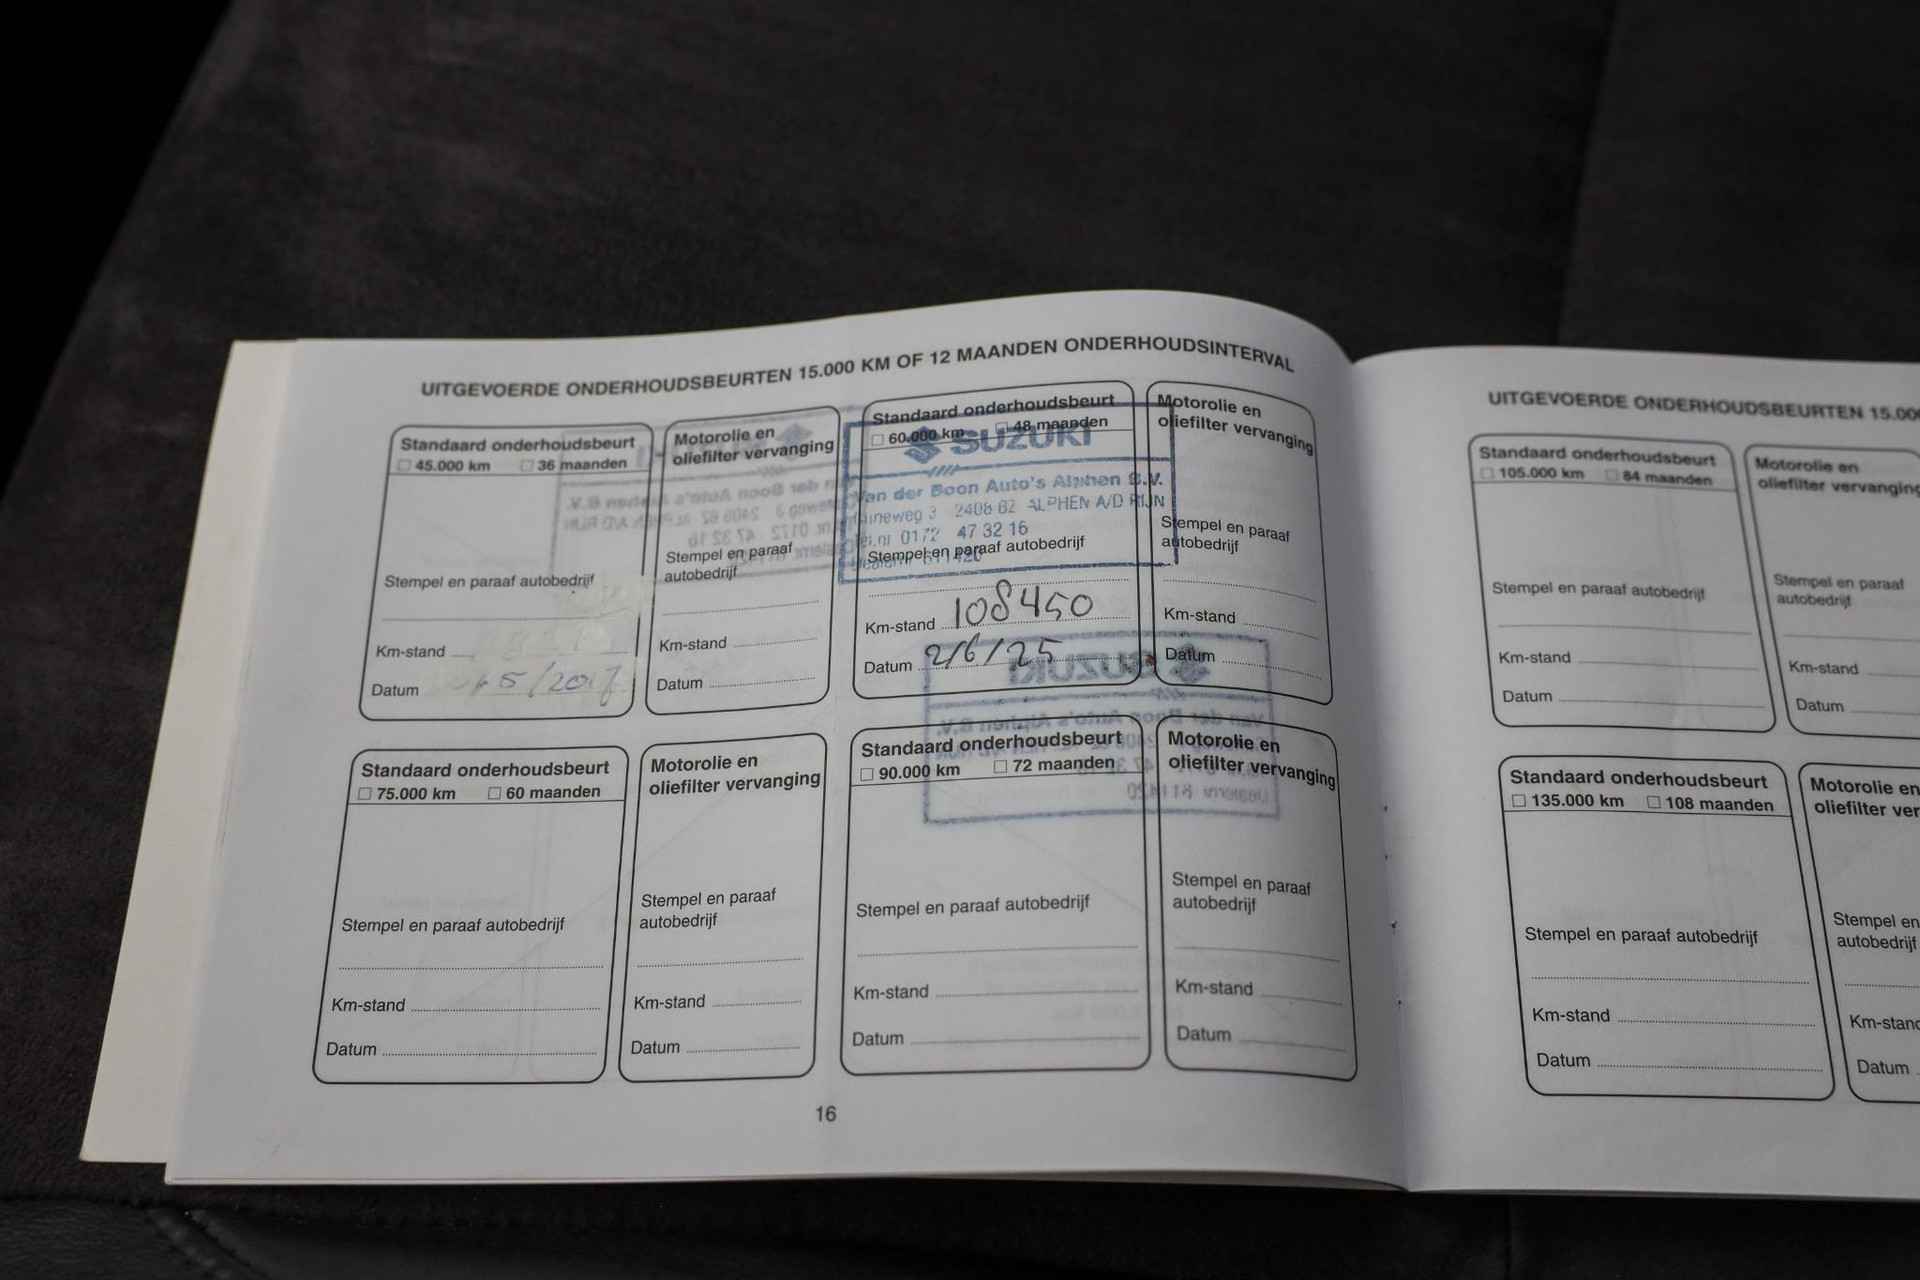 UITGEVOERDE ONDERHOUDSBEURTEN 15.000 KM OF 12 MAANDEN ONDERHOUDSINTERVAL
Standaard onderhoudsbeurt
45.000 km 36 maanden
Stempel en paraaf autobedrijf
Km-stand
Datum 5/2017
Motorolie en
oliefilter vervanging
Stempel en paraaf
autobedrijf
Km-stand
Datum
Standaard onderhoudsbeurt
60.000 km 48 maanden
SUZUKI
Van der Boon Auto's Alphen B.V.
2408 ALPHEN A/D RIJN
Tel.nr 0172 47 32 16
Stempel en paraaf autobedrijf
Km-stand 108450
Datum 2/6/25
Motorolie en
oliefilter vervanging
Stempel en paraaf
autobedrijf
Km-stand
Datum
Standaard onderhoudsbeurt
75.000 km 60 maanden
Stempel en paraaf autobedrijf
Km-stand
Datum
Motorolie en
oliefilter vervanging
Stempel en paraaf
autobedrijf
Km-stand
Datum
Standaard onderhoudsbeurt
90.000 km 72 maanden
Stempel en paraaf autobedrijf
Km-stand
Datum
Motorolie en
oliefilter vervanging
Stempel en paraaf
autobedrijf
Km-stand
Datum
16
UITGEVOERDE ONDERHOUDSBEURTEN 15.00
Standaard onderhoudsbeurt
105.000 km 84 maanden
Stempel en paraaf autobedrijf
Km-stand
Datum
Motorolie en
oliefilter vervanging
Stempel en paraaf
autobedrijf
Km-stand
Datum
Standaard onderhoudsbeurt
135.000 km 108 maanden
Stempel en paraaf autobedrijf
Km-stand
Datum
Motorolie en
oliefilter ver
Stempel en
autobedrijf
Km-stand
Datum